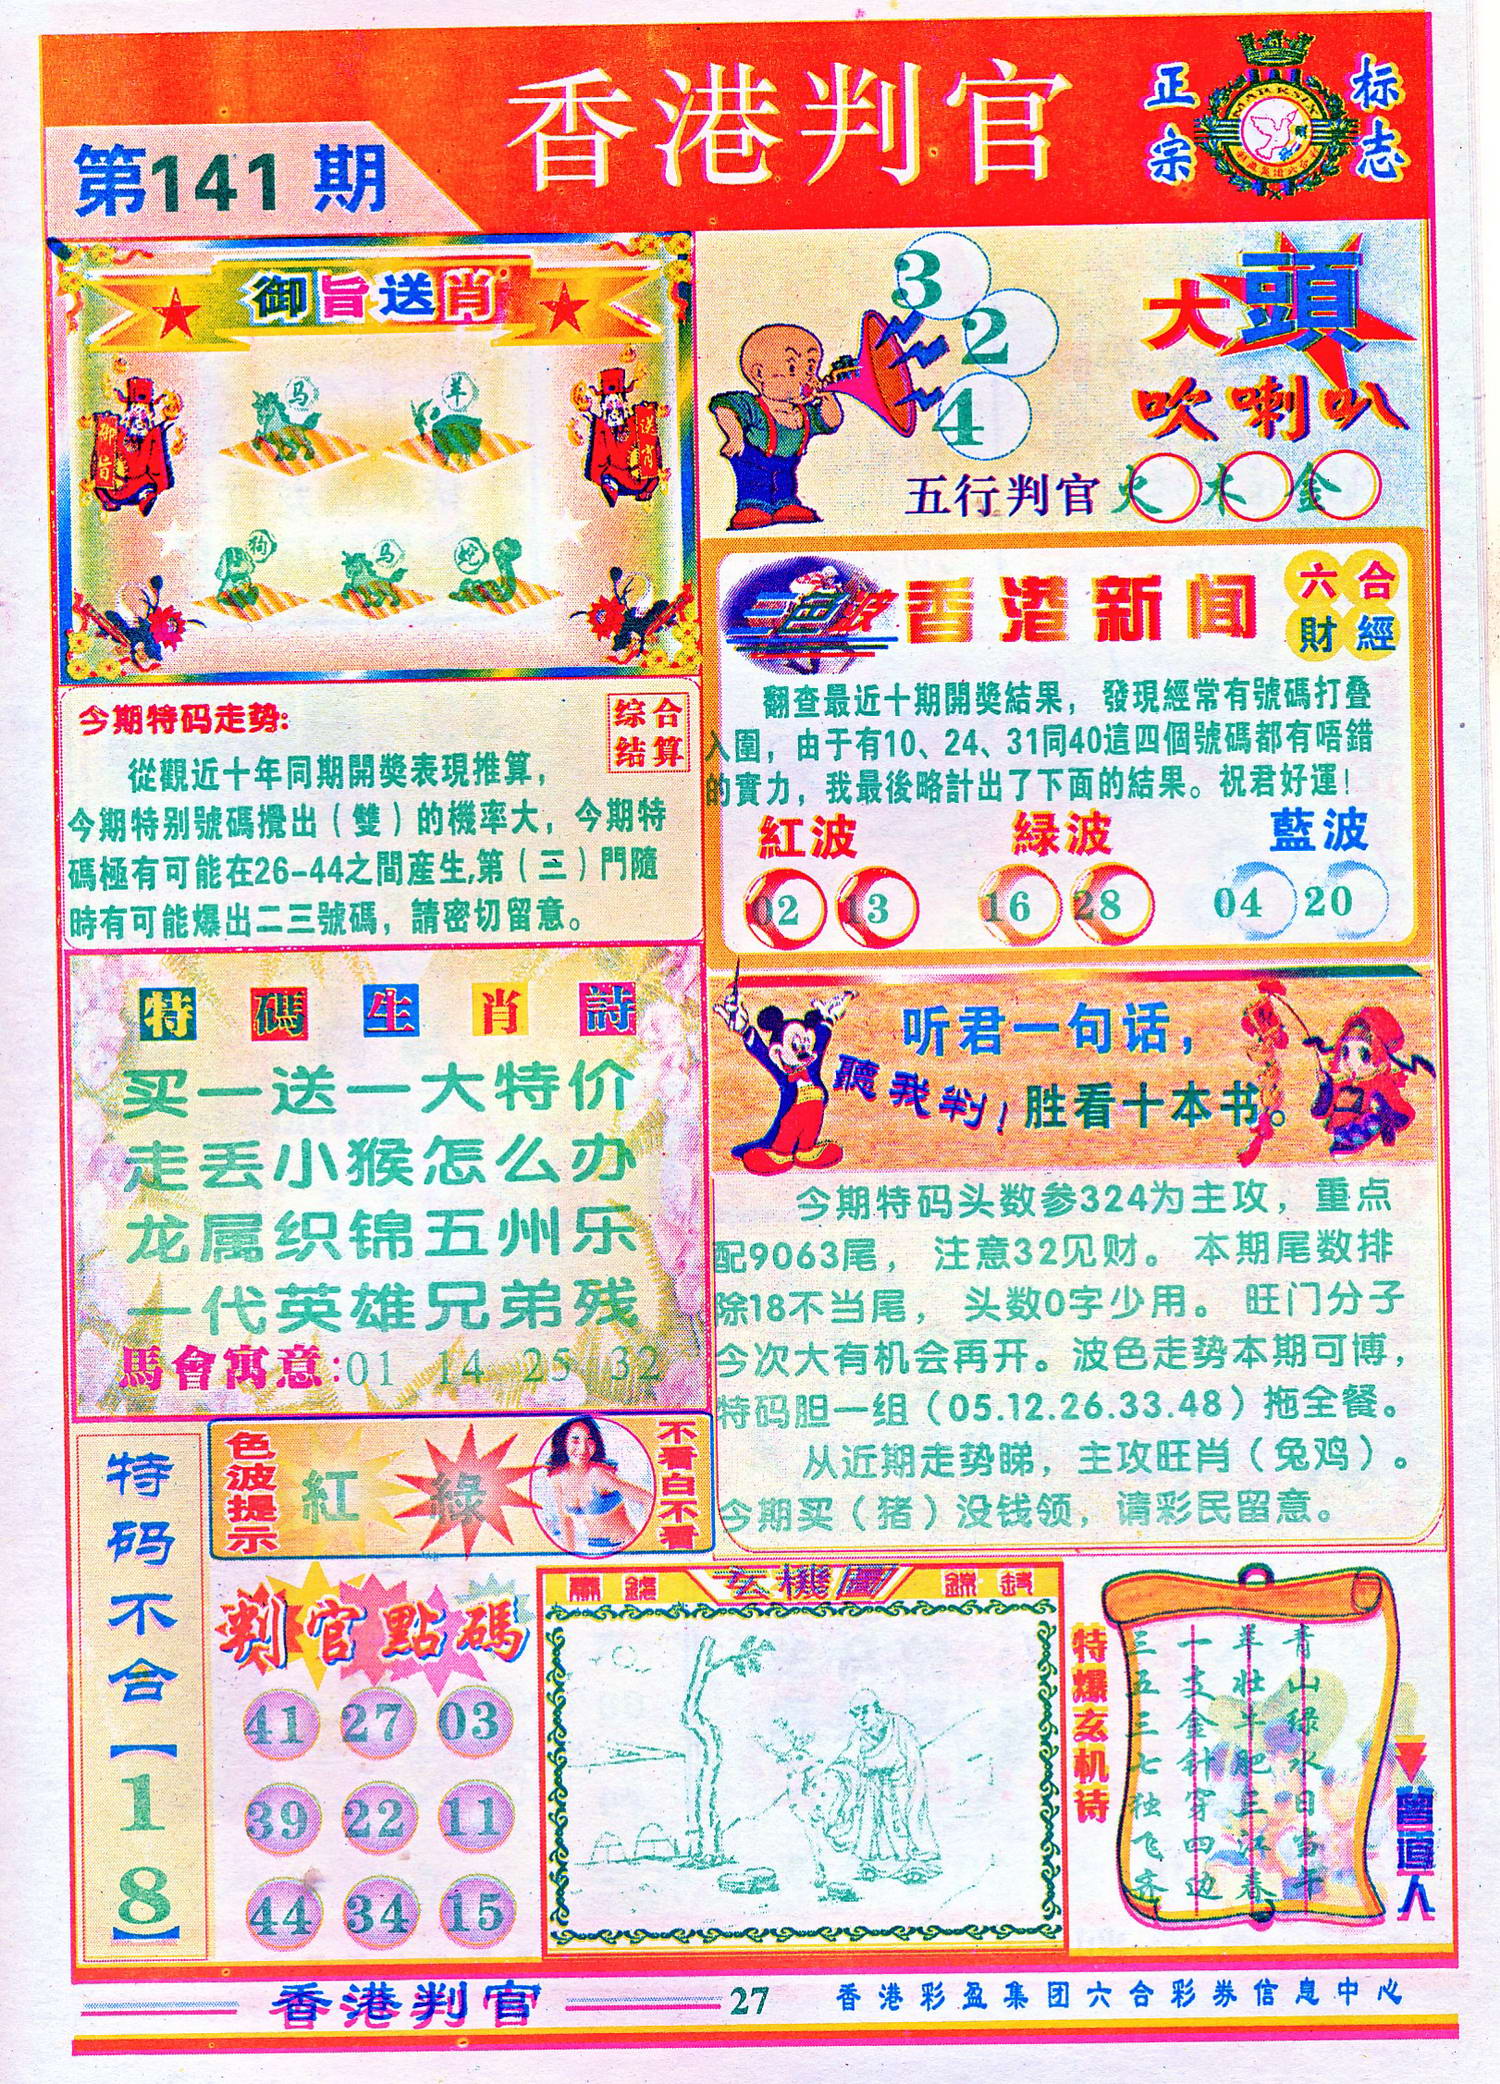 香港判官
正宗
标志
第141期
御旨送肖
马
羊
御旨
送肖
狗
马
蛇
3
2
4
大頭
吹喇叭
五行判官 火 木 金
香港新闻
六合
財經
翻查最近十期開獎結果，發現經常有號碼打叠
入圍，由于有10、24、31同40這四個號碼都有唔錯
的實力，我最後略計出了下面的結果。祝君好運！
紅波 緑波 藍波
02 13 16 28 04 20
今期特码走势:
综合
结算
從觀近十年同期開獎表現推算，
今期特别號碼攪出（雙）的機率大，今期特
碼極有可能在26-44之間産生,第（三）門隨
時有可能爆出二三號碼，請密切留意。
特碼生肖詩
买一送一大特价
走丢小猴怎么办
龙属织锦五州乐
一代英雄兄弟残
馬會寓意:01 14 25 32
听君一句话，
聽我判！胜看十本书。
今期特码头数参324为主攻，重点
配9063尾，注意32见财。本期尾数排
除18不当尾，头数0字少用。旺门分子
今次大有机会再开。波色走势本期可博，
特码胆一组（05.12.26.33.48）拖全餐。
从近期走势睇，主攻旺肖（兔鸡）。
今期买（猪）没钱领，请彩民留意。
特码不合【18】
色波提示
紅 綠
不看白不看
判官點碼
41 27 03
39 22 11
44 34 15
玄機圖
特爆玄机诗
青山绿水日当午
羊壮牛肥三江春
一支金针穿四边
三五三七独飞齐
曾道人
香港判官
27
香港彩盈集团六合彩券信息中心